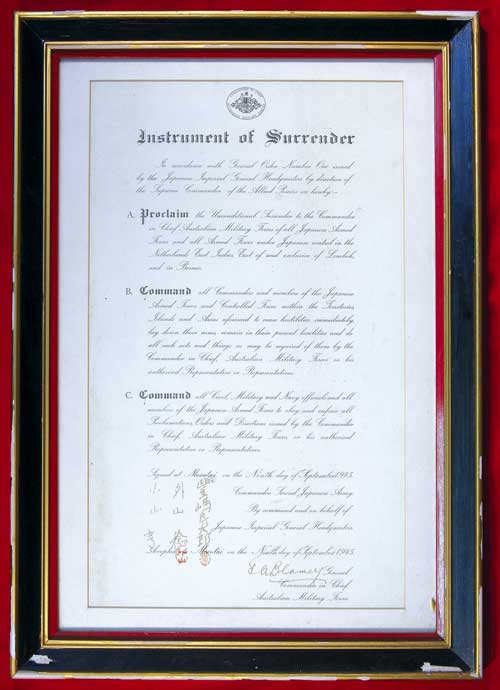 Instrument of Surrender
In accordance with General Order Number One issued
by the Japanese Imperial General Headquarters by direction of
the Supreme Commander of the Allied Powers we hereby:-
A. Proclaim the Unconditional Surrender to the Commander
in Chief Australian Military Forces of all Japanese Armed
Forces and all Armed Forces under Japanese control in the
Netherlands East Indies, East of and exclusive of Lombok,
and in Borneo.
B. Command all Commanders and members of the Japanese
Armed Forces and Controlled Forces within the Territories,
Islands and Areas referred to cease hostilities immediately,
lay down their arms, remain in their present localities and do
all such acts and things as may be required of them by the
Commander in Chief, Australian Military Forces or his
authorised Representative or Representatives.
C. Command all Civil, Military and Navy officials and all
members of the Japanese Armed Forces to obey and enforce all
Proclamations, Orders and Directions issued by the Commander
in Chief, Australian Military Forces or his authorised
Representative or Representatives.
Signed at Morotai on the Ninth day of September 1945
Commander Second Japanese Army.
By command and on behalf of
Japanese Imperial General Headquarters
小山
外山
Accepted at Morotai on the Ninth day of September 1945
T A Blamey General
Commander in Chief
Australian Military Forces